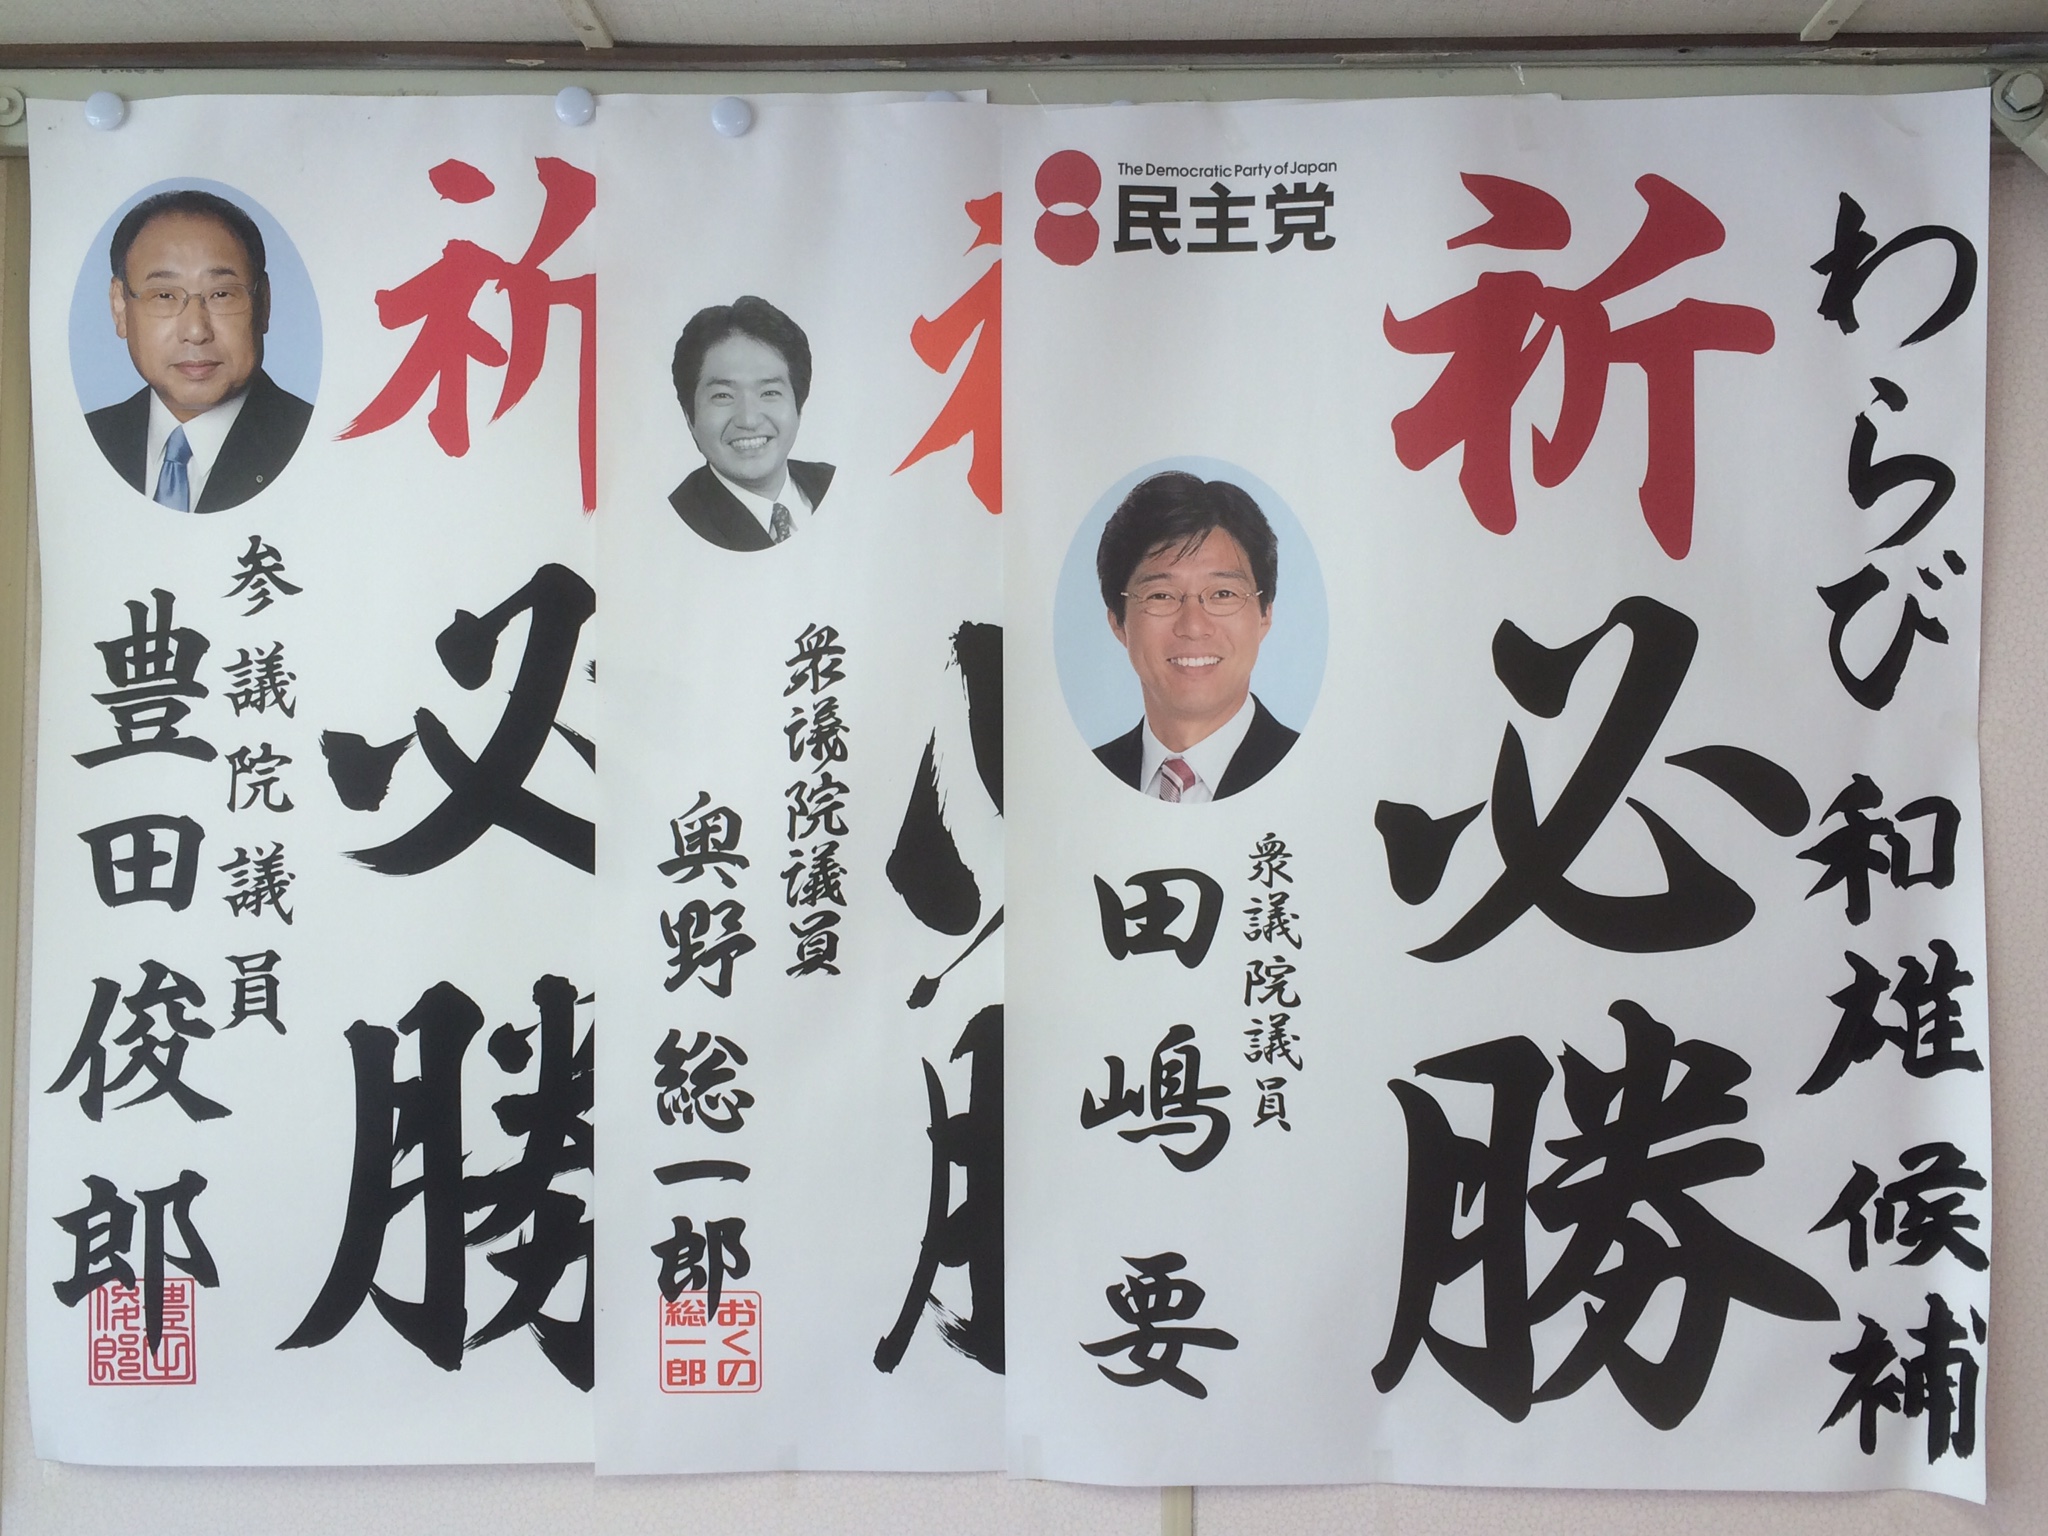 わらび和雄候補
祈必勝
The Democratic Party of Japan
民主党
衆議院議員
田嶋要
衆議院議員
奥野総一郎
おくの
総一郎
祈必勝
参議院議員
豊田俊郎
豊田
俊郎